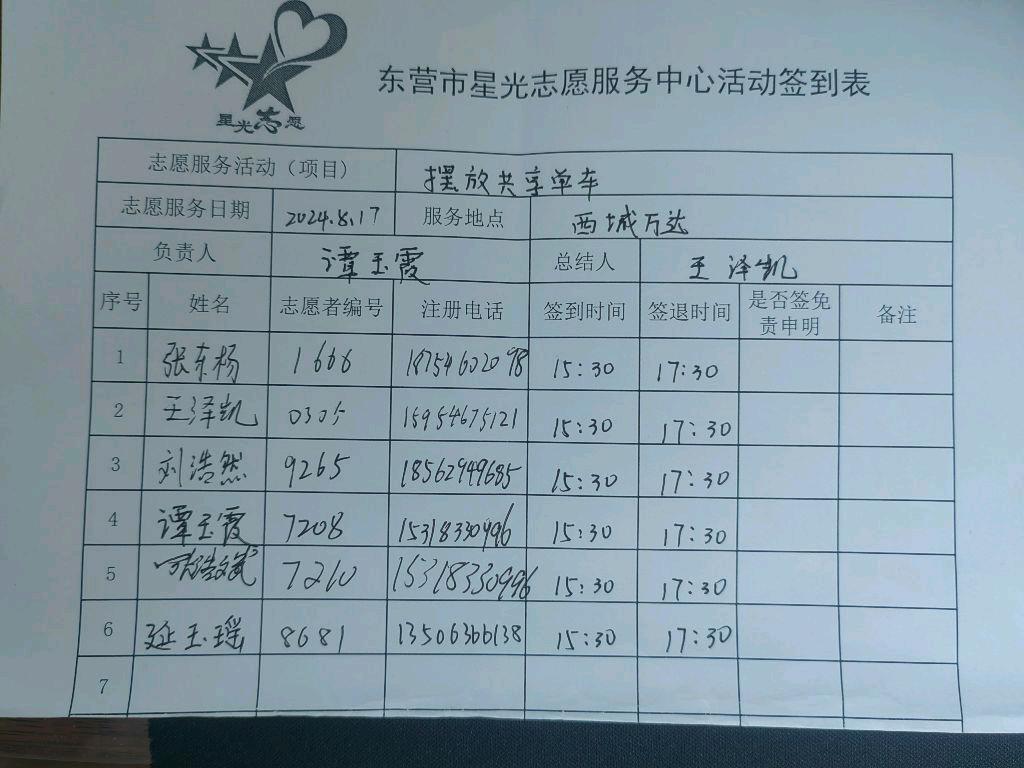 星光志愿
东营市星光志愿服务中心活动签到表
志愿服务活动（项目） 摆放共享单车
志愿服务日期 2024.8.17 服务地点 西城万达
负责人 谭玉霞 总结人 王泽凯
序号 姓名 志愿者编号 注册电话 签到时间 签退时间 是否签免责申明 备注
1 张东杨 1666 18754602098 15:30 17:30
2 王泽凯 0305 15954675121 15:30 17:30
3 刘浩然 9265 18562949685 15:30 17:30
4 谭玉霞 7208 15318330996 15:30 17:30
5 7210 15318330996 15:30 17:30
6 延玉瑶 8681 13506366138 15:30 17:30
7